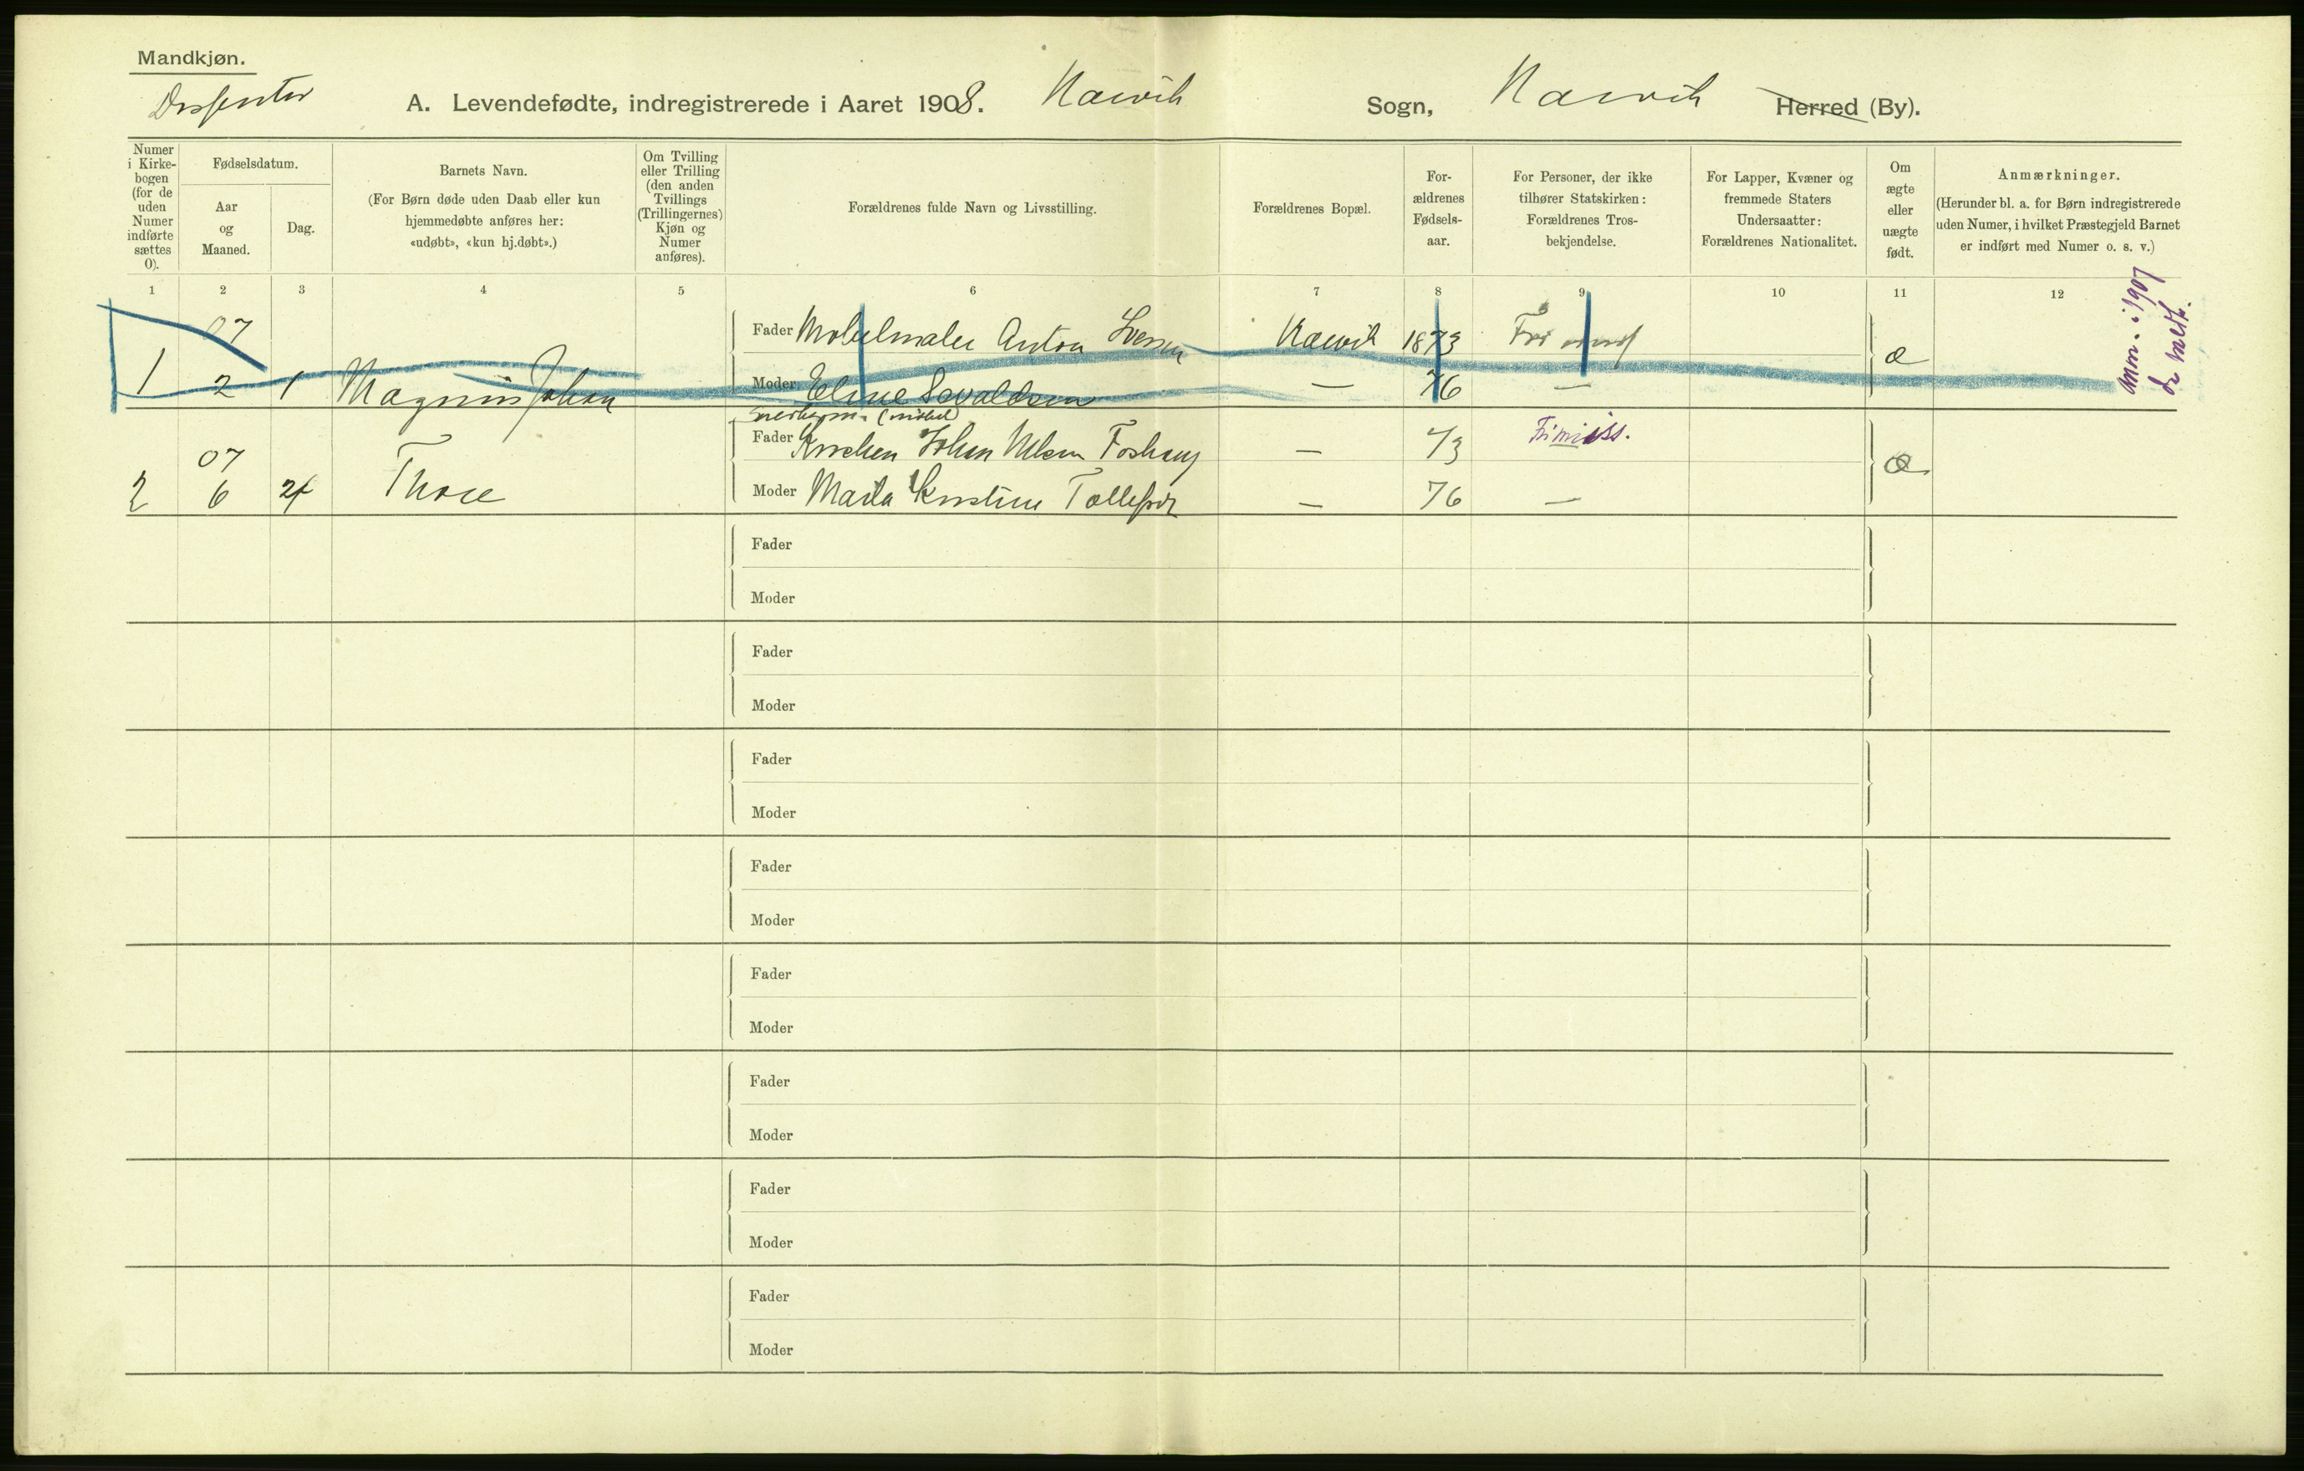 Mandkjøn.
Dissenter
A. Levendefødte, indregistrerede i Aaret 1908. Narvik Sogn, Narvik Herred (By).
Numer i Kirke-bogen (for de uden Numer indførte sættes 0).
Fødselsdatum.
Aar og Maaned.
Dag.
Barnets Navn.
(For Børn døde uden Daab eller kun
hjemmedøbte anføres her:
«udøbt», «kun hj.døbt».)
Om Tvilling
eller Trilling
(den anden
Tvillings
(Trillingernes)
Kjøn og
Numer
anføres).
Forældrenes fulde Navn og Livsstilling.
Forældrenes Bopæl.
For-
ældrenes
Fødsels-
aar.
For Personer, der ikke
tilhører Statskirken:
Forældrenes Tros-
bekjendelse.
For Lapper, Kvæner og
fremmede Staters
Undersaatter:
Forældrenes Nationalitet.
Om
ægte
eller
uægte
født.
Anmærkninger.
(Herunder bl. a. for Børn indregistrerede
uden Numer, i hvilket Præstegjeld Barnet
er indført med Numer o. s. v.)
1 2 3 4 5 6 7 8 9 10 11 12
07 Fader Anton Narvik 1873 Fri
1 2 1 Magnus Johan Moder Eline — 76 — æ
anm. i 1907
Fader Johan Foshaug — 73 Frimiss.
07
2 6 24 Thore Moder Kristine — 76 — æ
Fader
Moder
Fader
Moder
Fader
Moder
Fader
Moder
Fader
Moder
Fader
Moder
Fader
Moder
Fader
Moder